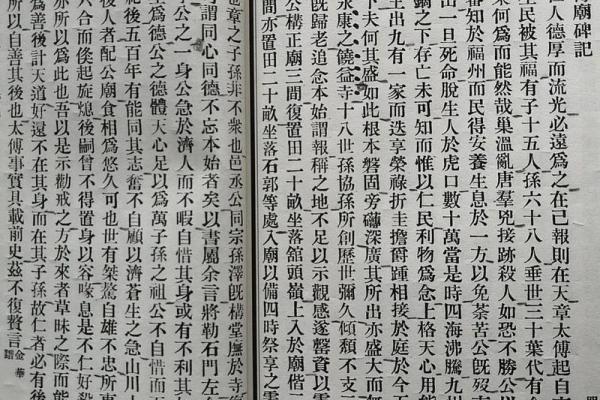 廟碑記
仁人德厚而流光必遠爲之在己報則在天章太傅起自
生民被其福有子十五人孫六十八人垂世三十葉代有
果何爲而能然哉巢溫亂唐羣兇接跡殺人如恐不勝公
審知於福州而民得安養生息於一方以免荼苦公旣歿
出一旦死命脫生人於虎口數十萬當是時四海沸騰九州
鍋之下存亡未可知而惟以仁民利物爲念上格天心用能
主出九有一家而迭享榮祿折圭擔爵踵相接於庭於今
下夫何其盛如此根本磐固旁礴深廣其所出亦盛大而
永康之饒益寺十八世孫協孫所創歷世彌久傾頹不支
旣歸老追念本始謂報稱之地不足以示觀感遂罄資以
公構正廟三間復置田二十畝坐落舘頭嶺上入於廟偕二
間亦置田二十畝坐落石郭等處入廟以備四時祭享之
也章之子孫非不衆也邑丞公同宗孫澤旣構堂廡於寺
可謂同心同德不忘本始者矣以書屬余言將勒石門左
公之一身公急於濟人而不暇自惜其身或有不利其
至爲德公之德體天心足以爲萬子孫之祖公不自惜而
祀後五百年有能同其志奮不自顧以濟蒼生之急山川
後人者配公廟食相爲悠久可也世有桀驁自雄不忠所事
六合而倏起旋熄後嗣曾不得置身以容喙息是不仁好殺
亦所以爲此也吾以是示勸戒之方於來者草昧之際而能
爲善後計天道好還不在其身而在其子孫故仁者必有後
所以自善其後也太傅事實具載前史茲不復贅言 金華譜